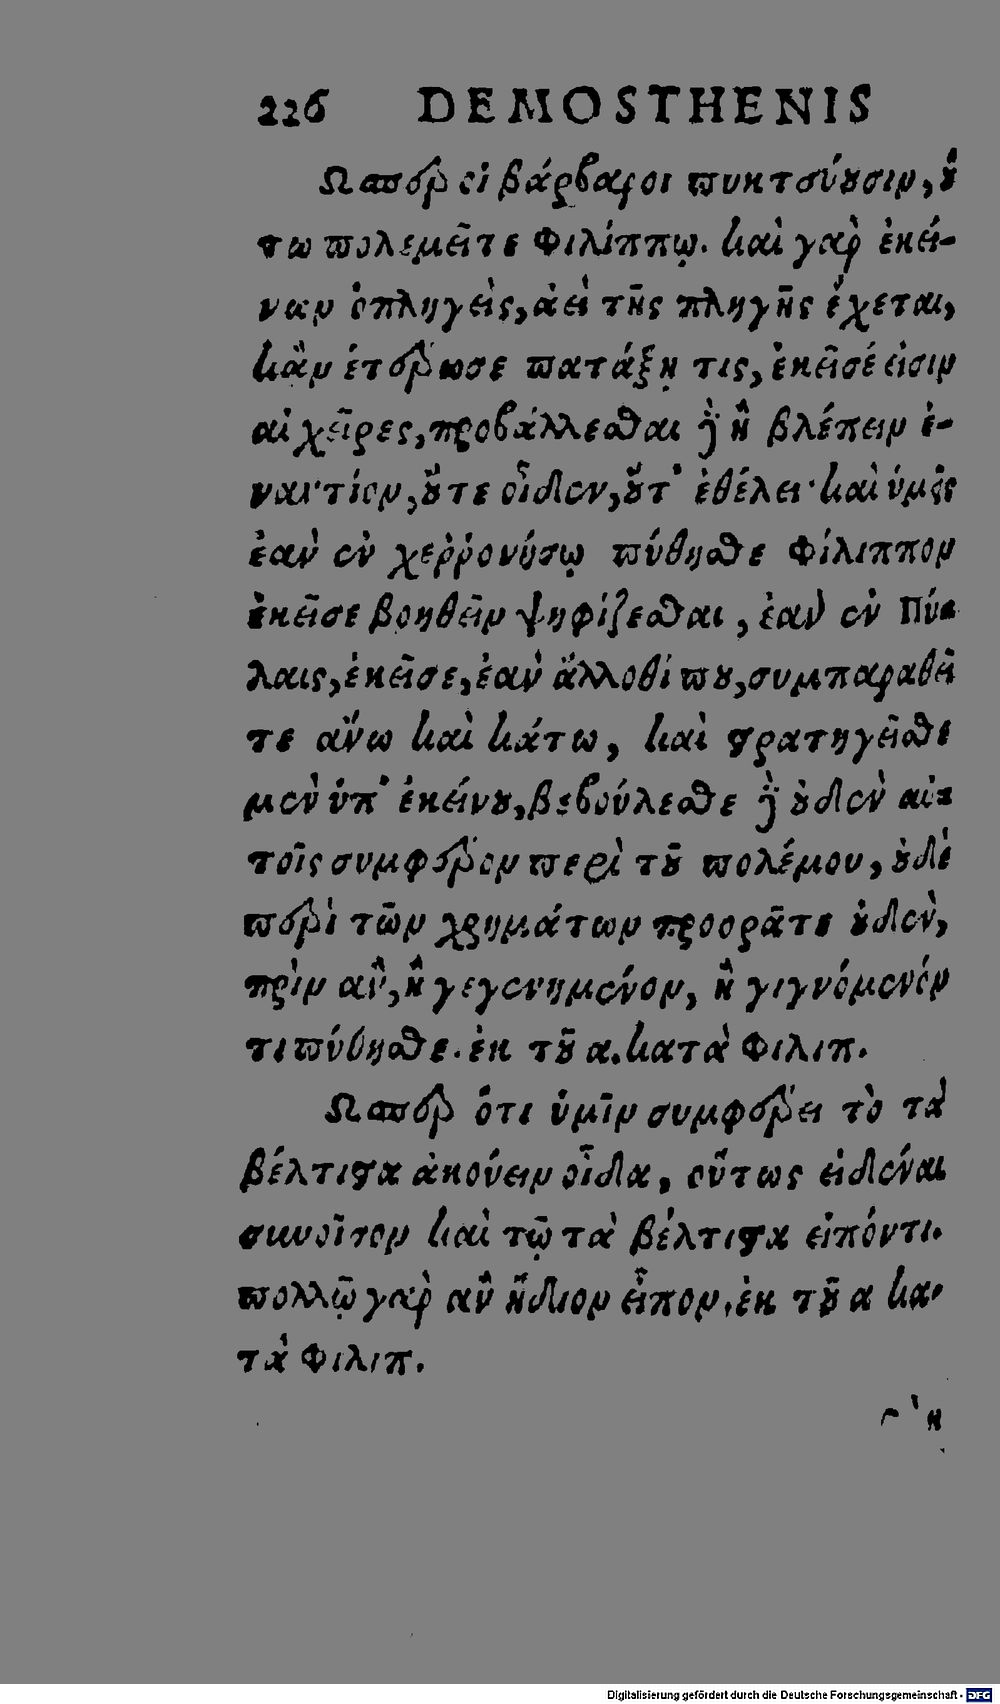 226 DEMOSTHENIS
Ωσπερ οἱ βάρβαροι πυκτεύουσιν, οὕ
τω πολεμεῖτε Φιλίππῳ. καὶ γὰρ ἐκεί-
νων ὁ πληγεὶς, ἀεὶ τῆς πληγῆς ἔχεται,
κἂν ἑτέρωσε πατάξῃ τις, ἐκεῖσέ εἰσιν
αἱ χεῖρες, προβάλλεσθαι δ' ἢ βλέπειν ἐ-
ναντίον, οὔτε οἶδεν, οὔτ' ἐθέλει· καὶ ὑμεῖς
ἐὰν ἐν χερρονήσῳ πύθησθε Φίλιππον
ἐκεῖσε βοηθεῖν ψηφίζεσθαι, ἐὰν ἐν Πύ-
λαις, ἐκεῖσε, ἐὰν ἄλλοθί που, συμπαραθεῖ
τε ἄνω καὶ κάτω, καὶ στρατηγεῖσθε
μὲν ὑπ' ἐκείνου, βεβούλεσθε δ' οὐδὲν αὐ-
τοῖς συμφέρον περὶ τοῦ πολέμου, οὐδὲ
περὶ τῶν χρημάτων προορᾶτε οὐδὲν,
πρὶν ἂν, ἢ γεγενημένον, ἢ γιγνόμενόν
τι πύθησθε. ἐκ τοῦ α. κατὰ Φιλιπ.
Ωσπερ ὅτι ὑμῖν συμφέρει τὸ τὰ
βέλτιστα ἀκούειν οἶδα, οὕτως εἰδέναι
συνοῖσον καὶ τῷ τὰ βέλτιστα εἰπόντι.
πολλῷ γὰρ ἂν ἥδιον εἶπον. ἐκ τοῦ α κα-
τὰ Φιλιπ.
Digitalisierung gefördert durch die Deutsche Forschungsgemeinschaft - DFG